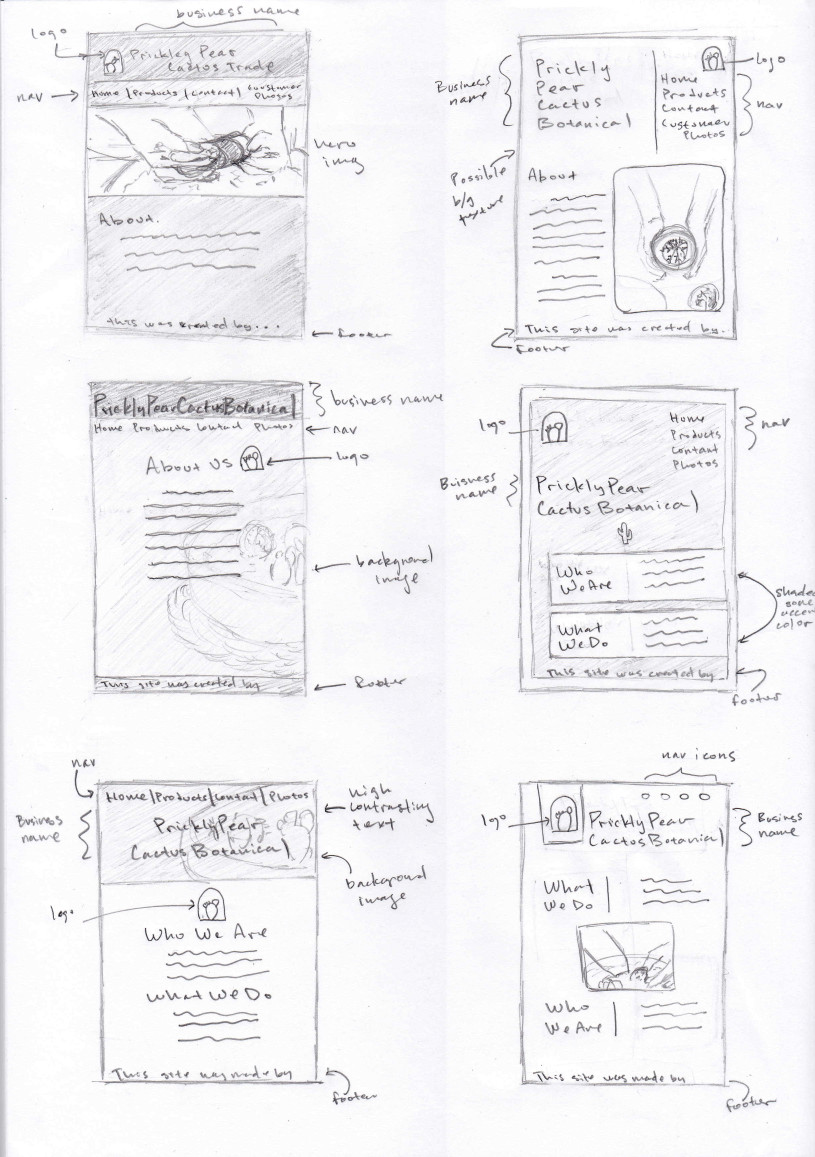 business name
logo
Prickley Pear
Cactus Trade
nav
Home | Products | Contact | Customer
Photos
hero
img
About.
this was created by...
footer
Business
name
Prickly
Pear
Cactus
Botanical
logo
Home
Products
Contact
Customer
Photos
nav
Possible
b/g
texture
About
This site was created by..
footer
PricklyPearCactusBotanical
business name
Home Products Contact Photos
nav
About Us
logo
background
image
This site was created by
footer
logo
Home
Products
Contant
Photos
nav
Buisness
name
PricklyPear
Cactus Botanical
Who
We Are
What
We Do
shaded
some
accent
color
This site was created by
footer
nav
Home|Products|Contact|Photos
high
contrasting
text
Business
name
PricklyPear
Cactus Botanical
background
image
logo
Who We Are
What We Do
This site was made by
footer
nav icons
logo
PricklyPear
Cactus Botanical
Business
name
What
We Do
Who
We Are
This site was made by
footer